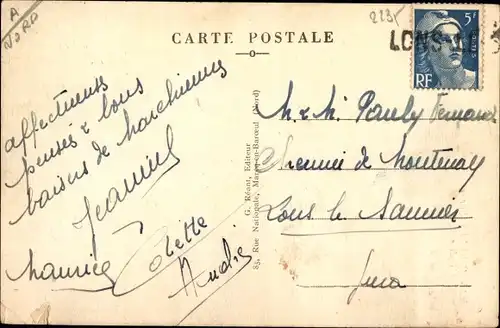 A
NORD
CARTE POSTALE
5F
RF
LONS-LE
affectueuses
pensées & bons
baisers de Marchiennes
Jeannine
Maurice Colette
André
G. Réant, Editeur
83, Rue Nationale, Marcq-en-Barœul (Nord)
M & Mme Pauly Fernand
Chemin de Montciel
Lons le Saunier
Jura